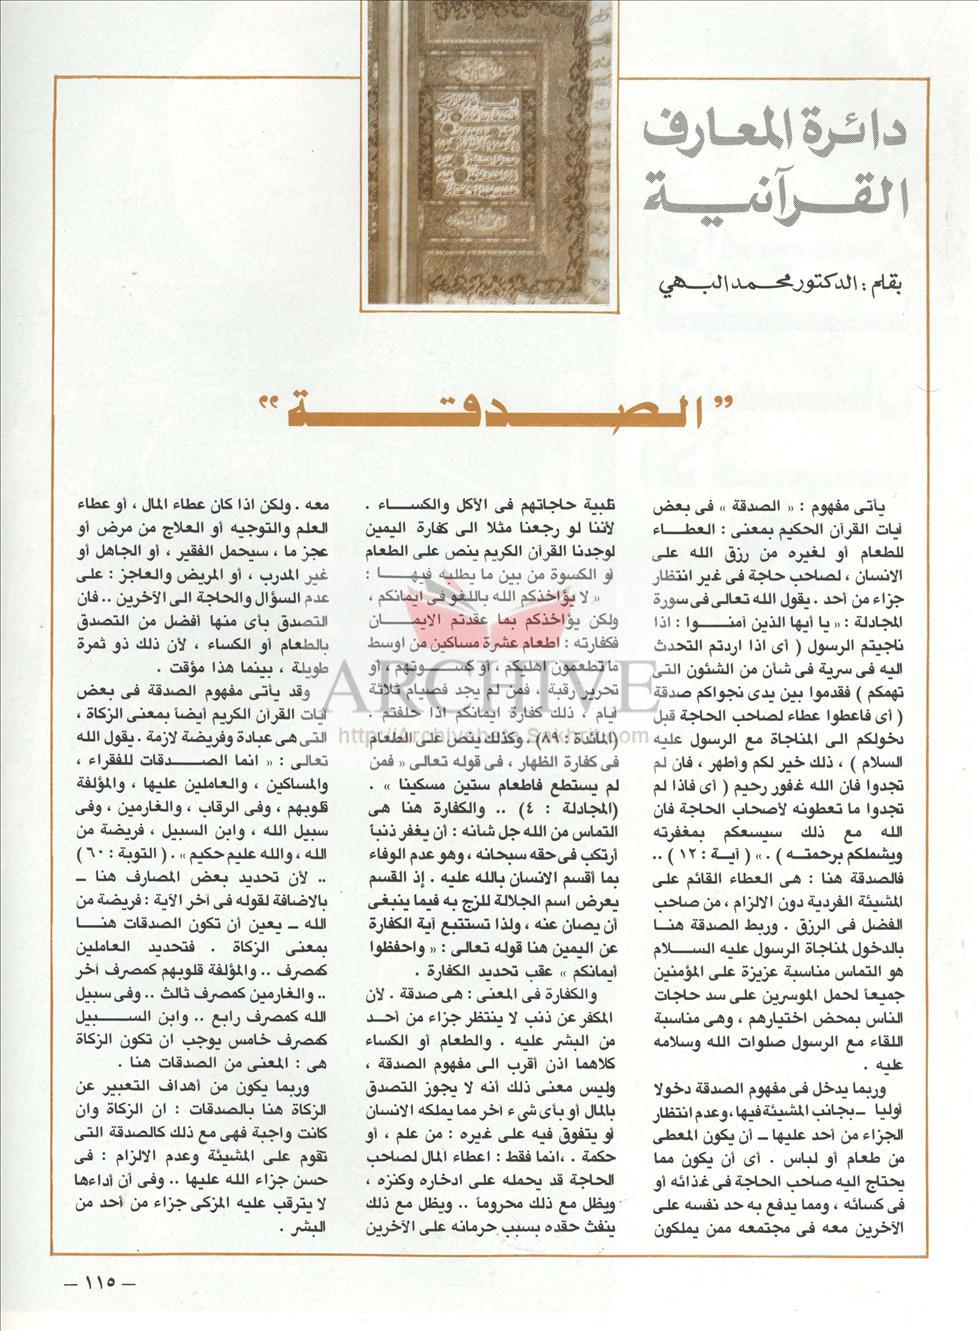 دائرة المعارف
القرآنية
بقلم : الدكتور محمد البهي
" الصدقة "
يأتى مفهوم : « الصدقة » فى بعض
آيات القرآن الحكيم بمعنى : العطاء
للطعام أو لغيره من رزق الله على
الانسان ، لصاحب حاجة فى غير انتظار
جزاء من أحد . يقول الله تعالى فى سورة
المجادلة : « يا أيها الذين آمنوا : اذا
ناجيتم الرسول ( أى اذا اردتم التحدث
اليه فى سرية فى شأن من الشئون التى
تهمكم ) فقدموا بين يدى نجواكم صدقة
( أى فاعطوا عطاء لصاحب الحاجة قبل
دخولكم الى المناجاة مع الرسول عليه
السلام ) ، ذلك خير لكم وأطهر ، فان لم
تجدوا فان الله غفور رحيم ( أى فاذا لم
تجدوا ما تعطونه لأصحاب الحاجة فان
الله مع ذلك سيسعكم بمغفرته
ويشملكم برحمته ) . » ( آية : ١٢ ) ..
فالصدقة هنا : هى العطاء القائم على
المشيئة الفردية دون الالزام ، من صاحب
الفضل فى الرزق . وربط الصدقة هنا
بالدخول لمناجاة الرسول عليه السلام
هو التماس مناسبة عزيزة على المؤمنين
جميعاً لحمل الموسرين على سد حاجات
الناس بمحض اختيارهم ، وهى مناسبة
اللقاء مع الرسول صلوات الله وسلامه
عليه .
وربما يدخل فى مفهوم الصدقة دخولا
أوليا ــ بجانب المشيئة فيها، وعدم انتظار
الجزاء من أحد عليها ــ أن يكون المعطى
من طعام أو لباس . أى أن يكون مما
يحتاج اليه صاحب الحاجة فى غذائه أو
فى كسائه ، ومما يدفع به حد نفسه على
الآخرين معه فى مجتمعه ممن يملكون
تلبية حاجاتهم فى الأكل والكساء .
لأننا لو رجعنا مثلا الى كفارة اليمين
لوجدنا القرآن الكريم ينص على الطعام
أو الكسوة من بين ما يطلبه فيها :
« لا يؤاخذكم الله باللغو فى ايمانكم ،
ولكن يؤاخذكم بما عقدتم الايمان
فكفارته : اطعام عشرة مساكين من اوسط
ما تطعمون اهليكم ، أو كسوتهم ، أو
تحرير رقبة ، فمن لم يجد فصيام ثلاثة
أيام ، ذلك كفارة ايمانكم اذا حلفتم .
(المائدة : ٨٩) . وكذلك ينص على الطعام
فى كفارة الظهار ، فى قوله تعالى « فمن
لم يستطع فاطعام ستين مسكينا » .
(المجادلة : ٤) .. والكفارة هنا هى
التماس من الله جل شأنه : أن يغفر ذنباً
أرتكب فى حقه سبحانه ، وهو عدم الوفاء
بما أقسم الانسان بالله عليه . إذ القسم
يعرض اسم الجلالة للزج به فيما ينبغى
أن يصان عنه ، ولذا تستتبع آية الكفارة
عن اليمين هنا قوله تعالى : « واحفظوا
أيمانكم » عقب تحديد الكفارة .
والكفارة فى المعنى : هى صدقة . لأن
المكفر عن ذنب لا ينتظر جزاء من أحد
من البشر عليه . والطعام أو الكساء
كلاهما اذن أقرب الى مفهوم الصدقة ،
وليس معنى ذلك أنه لا يجوز التصدق
بالمال أو بأى شىء آخر مما يملكه الانسان
أو يتفوق فيه على غيره : من علم ، أو
حكمة . ،انما فقط : اعطاء المال لصاحب
الحاجة قد يحمله على ادخاره وكنزه ،
ويظل مع ذلك محروماً .. ويظل مع ذلك
ينفث حقده بسبب حرمانه على الآخرين
معه . ولكن اذا كان عطاء المال ، أو عطاء
العلم والتوجيه أو العلاج من مرض أو
عجز ما ، سيحمل الفقير ، أو الجاهل أو
غير المدرب ، أو المريض والعاجز : على
عدم السؤال والحاجة الى الآخرين .. فان
التصدق بأى منها أفضل من التصدق
بالطعام أو الكساء ، لأن ذلك ذو ثمرة
طويلة ، بينما هذا مؤقت .
وقد يأتى مفهوم الصدقة فى بعض
آيات القرآن الكريم أيضاً بمعنى الزكاة ،
التى هى عبادة وفريضة لازمة . يقول الله
تعالى : « انما الصدقات للفقراء ،
والمساكين ، والعاملين عليها ، والمؤلفة
قلوبهم ، وفى الرقاب ، والغارمين ، وفى
سبيل الله ، وابن السبيل ، فريضة من
الله ، والله عليم حكيم » . ( التوبة : ٦٠ )
.. لأن تحديد بعض المصارف هنا ــ
بالاضافة لقوله فى آخر الآية : فريضة من
الله ــ يعين أن تكون الصدقات هنا
بمعنى الزكاة . فتحديد العاملين
كمصرف .. والمؤلفة قلوبهم كمصرف آخر
.. والغارمين كمصرف ثالث .. وفى سبيل
الله كمصرف رابع .. وابن السبيل
كمصرف خامس يوجب ان تكون الزكاة
هى : المعنى من الصدقات هنا .
وربما يكون من أهداف التعبير عن
الزكاة هنا بالصدقات : ان الزكاة وان
كانت واجبة فهى مع ذلك كالصدقة التى
تقوم على المشيئة وعدم الالزام : فى
حسن جزاء الله عليها .. وفى أن أداءها
لا يترقب عليه المزكى جزاء من أحد من
البشر .
ARCHIVE
http://Archivebeta.Sakhrit.com
– ١١٥ –